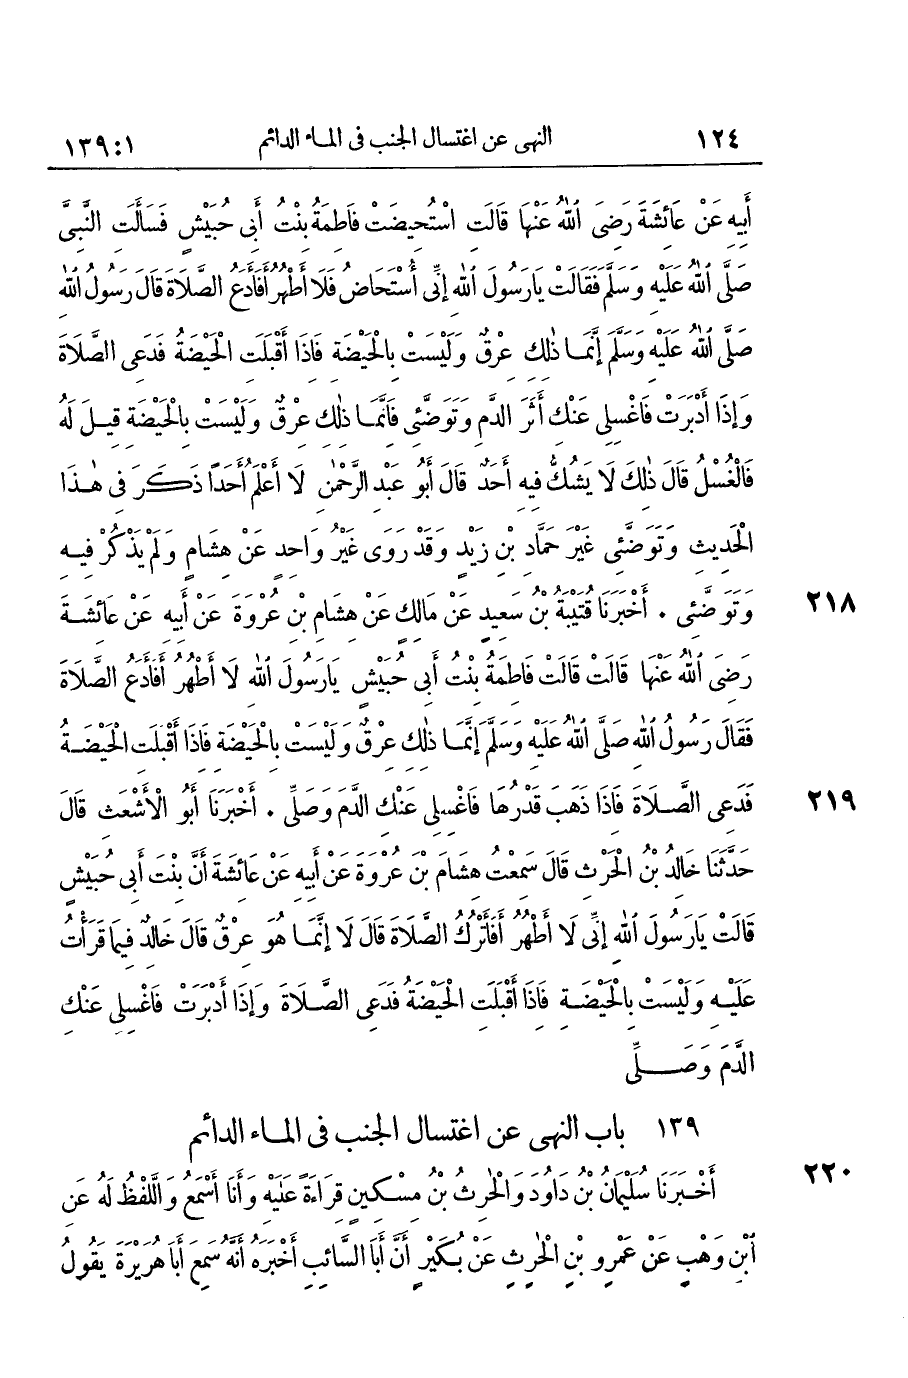 ١٢٤ النهى عن اغتسال الجنب فى الماء الدائم ١٣٩:١
أَبِيهِ عَنْ عَائِشَةَ رَضِىَ اللهُ عَنْهَا قَالَتِ اسْتُحِيضَتْ فَاطِمَةُ بِنْتُ أَبِى حُبَيْشٍ فَسَأَلَتِ النَّبِىَّ
صَلَّى اللهُ عَلَيْهِ وَسَلَّمَ فَقَالَتْ يَارَسُولَ اللهِ إِنِّى أُسْتَحَاضُ فَلَا أَطْهُرُ أَفَأَدَعُ الصَّلَاةَ قَالَ رَسُولُ اللهِ
صَلَّى اللهُ عَلَيْهِ وَسَلَّمَ إِنَّمَا ذٰلِكِ عِرْقٌ وَلَيْسَتْ بِالْحَيْضَةِ فَاذَا أَقْبَلَتِ الْحَيْضَةُ فَدَعِى الصَّلَاةَ
وَإِذَا أَدْبَرَتْ فَاغْسِلِى عَنْكِ أَثَرَ الدَّمِ وَتَوَضَّئِى فَانَّمَا ذٰلِكِ عِرْقٌ وَلَيْسَتْ بِالْحَيْضَةِ قِيلَ لَهُ
فَالْغُسْلُ قَالَ ذٰلِكَ لَا يَشُكُّ فِيهِ أَحَدٌ قَالَ أَبُو عَبْدِ الرَّحْمٰنِ لَا أَعْلَمُ أَحَدًا ذَكَرَ فِى هٰذَا
الْحَدِيثِ وَتَوَضَّئِى غَيْرَ حَمَّادِ بْنِ زَيْدٍ وَقَدْ رَوَى غَيْرُ وَاحِدٍ عَنْ هِشَامٍ وَلَمْ يَذْكُرْ فِيهِ
٢١٨ وَتَوَضَّئِى . أَخْبَرَنَا قُتَيْبَةُ بْنُ سَعِيدٍ عَنْ مَالِكٍ عَنْ هِشَامِ بْنِ عُرْوَةَ عَنْ أَبِيهِ عَنْ عَائِشَةَ
رَضِىَ اللهُ عَنْهَا قَالَتْ قَالَتْ فَاطِمَةُ بِنْتُ أَبِى حُبَيْشٍ يَارَسُولَ اللهِ لَا أَطْهُرُ أَفَأَدَعُ الصَّلَاةَ
فَقَالَ رَسُولُ اللهِ صَلَّى اللهُ عَلَيْهِ وَسَلَّمَ إِنَّمَا ذٰلِكِ عِرْقٌ وَلَيْسَتْ بِالْحَيْضَةِ فَاذَا أَقْبَلَتِ الْحَيْضَةُ
٢١٩ فَدَعِى الصَّلَاةَ فَاذَا ذَهَبَ قَدْرُهَا فَاغْسِلِى عَنْكِ الدَّمَ وَصَلِّى . أَخْبَرَنَا أَبُو الْأَشْعَثِ قَالَ
حَدَّثَنَا خَالِدُ بْنُ الْحٰرِثِ قَالَ سَمِعْتُ هِشَامَ بْنَ عُرْوَةَ عَنْ أَبِيهِ عَنْ عَائِشَةَ أَنَّ بِنْتَ أَبِى حُبَيْشٍ
قَالَتْ يَارَسُولَ اللهِ إِنِّى لَا أَطْهُرُ أَفَأَتْرُكُ الصَّلَاةَ قَالَ لَا إِنَّمَا هُوَ عِرْقٌ قَالَ خَالِدٌ فِيمَا قَرَأْتُ
عَلَيْهِ وَلَيْسَتْ بِالْحَيْضَةِ فَاذَا أَقْبَلَتِ الْحَيْضَةُ فَدَعِى الصَّلَاةَ وَإِذَا أَدْبَرَتْ فَاغْسِلِى عَنْكِ
الدَّمَ وَصَلِّى
١٣٩ باب النهى عن اغتسال الجنب فى الماء الدائم
٢٢٠ أَخْبَرَنَا سُلَيْمَانُ بْنُ دَاوُدَ وَالْحٰرِثُ بْنُ مِسْكِينٍ قِرَاءَةً عَلَيْهِ وَأَنَا أَسْمَعُ وَاللَّفْظُ لَهُ عَنِ
ابْنِ وَهْبٍ عَنْ عَمْرِو بْنِ الْحٰرِثِ عَنْ بُكَيْرٍ أَنَّ أَبَا السَّائِبِ أَخْبَرَهُ أَنَّهُ سَمِعَ أَبَا هُرَيْرَةَ يَقُولُ